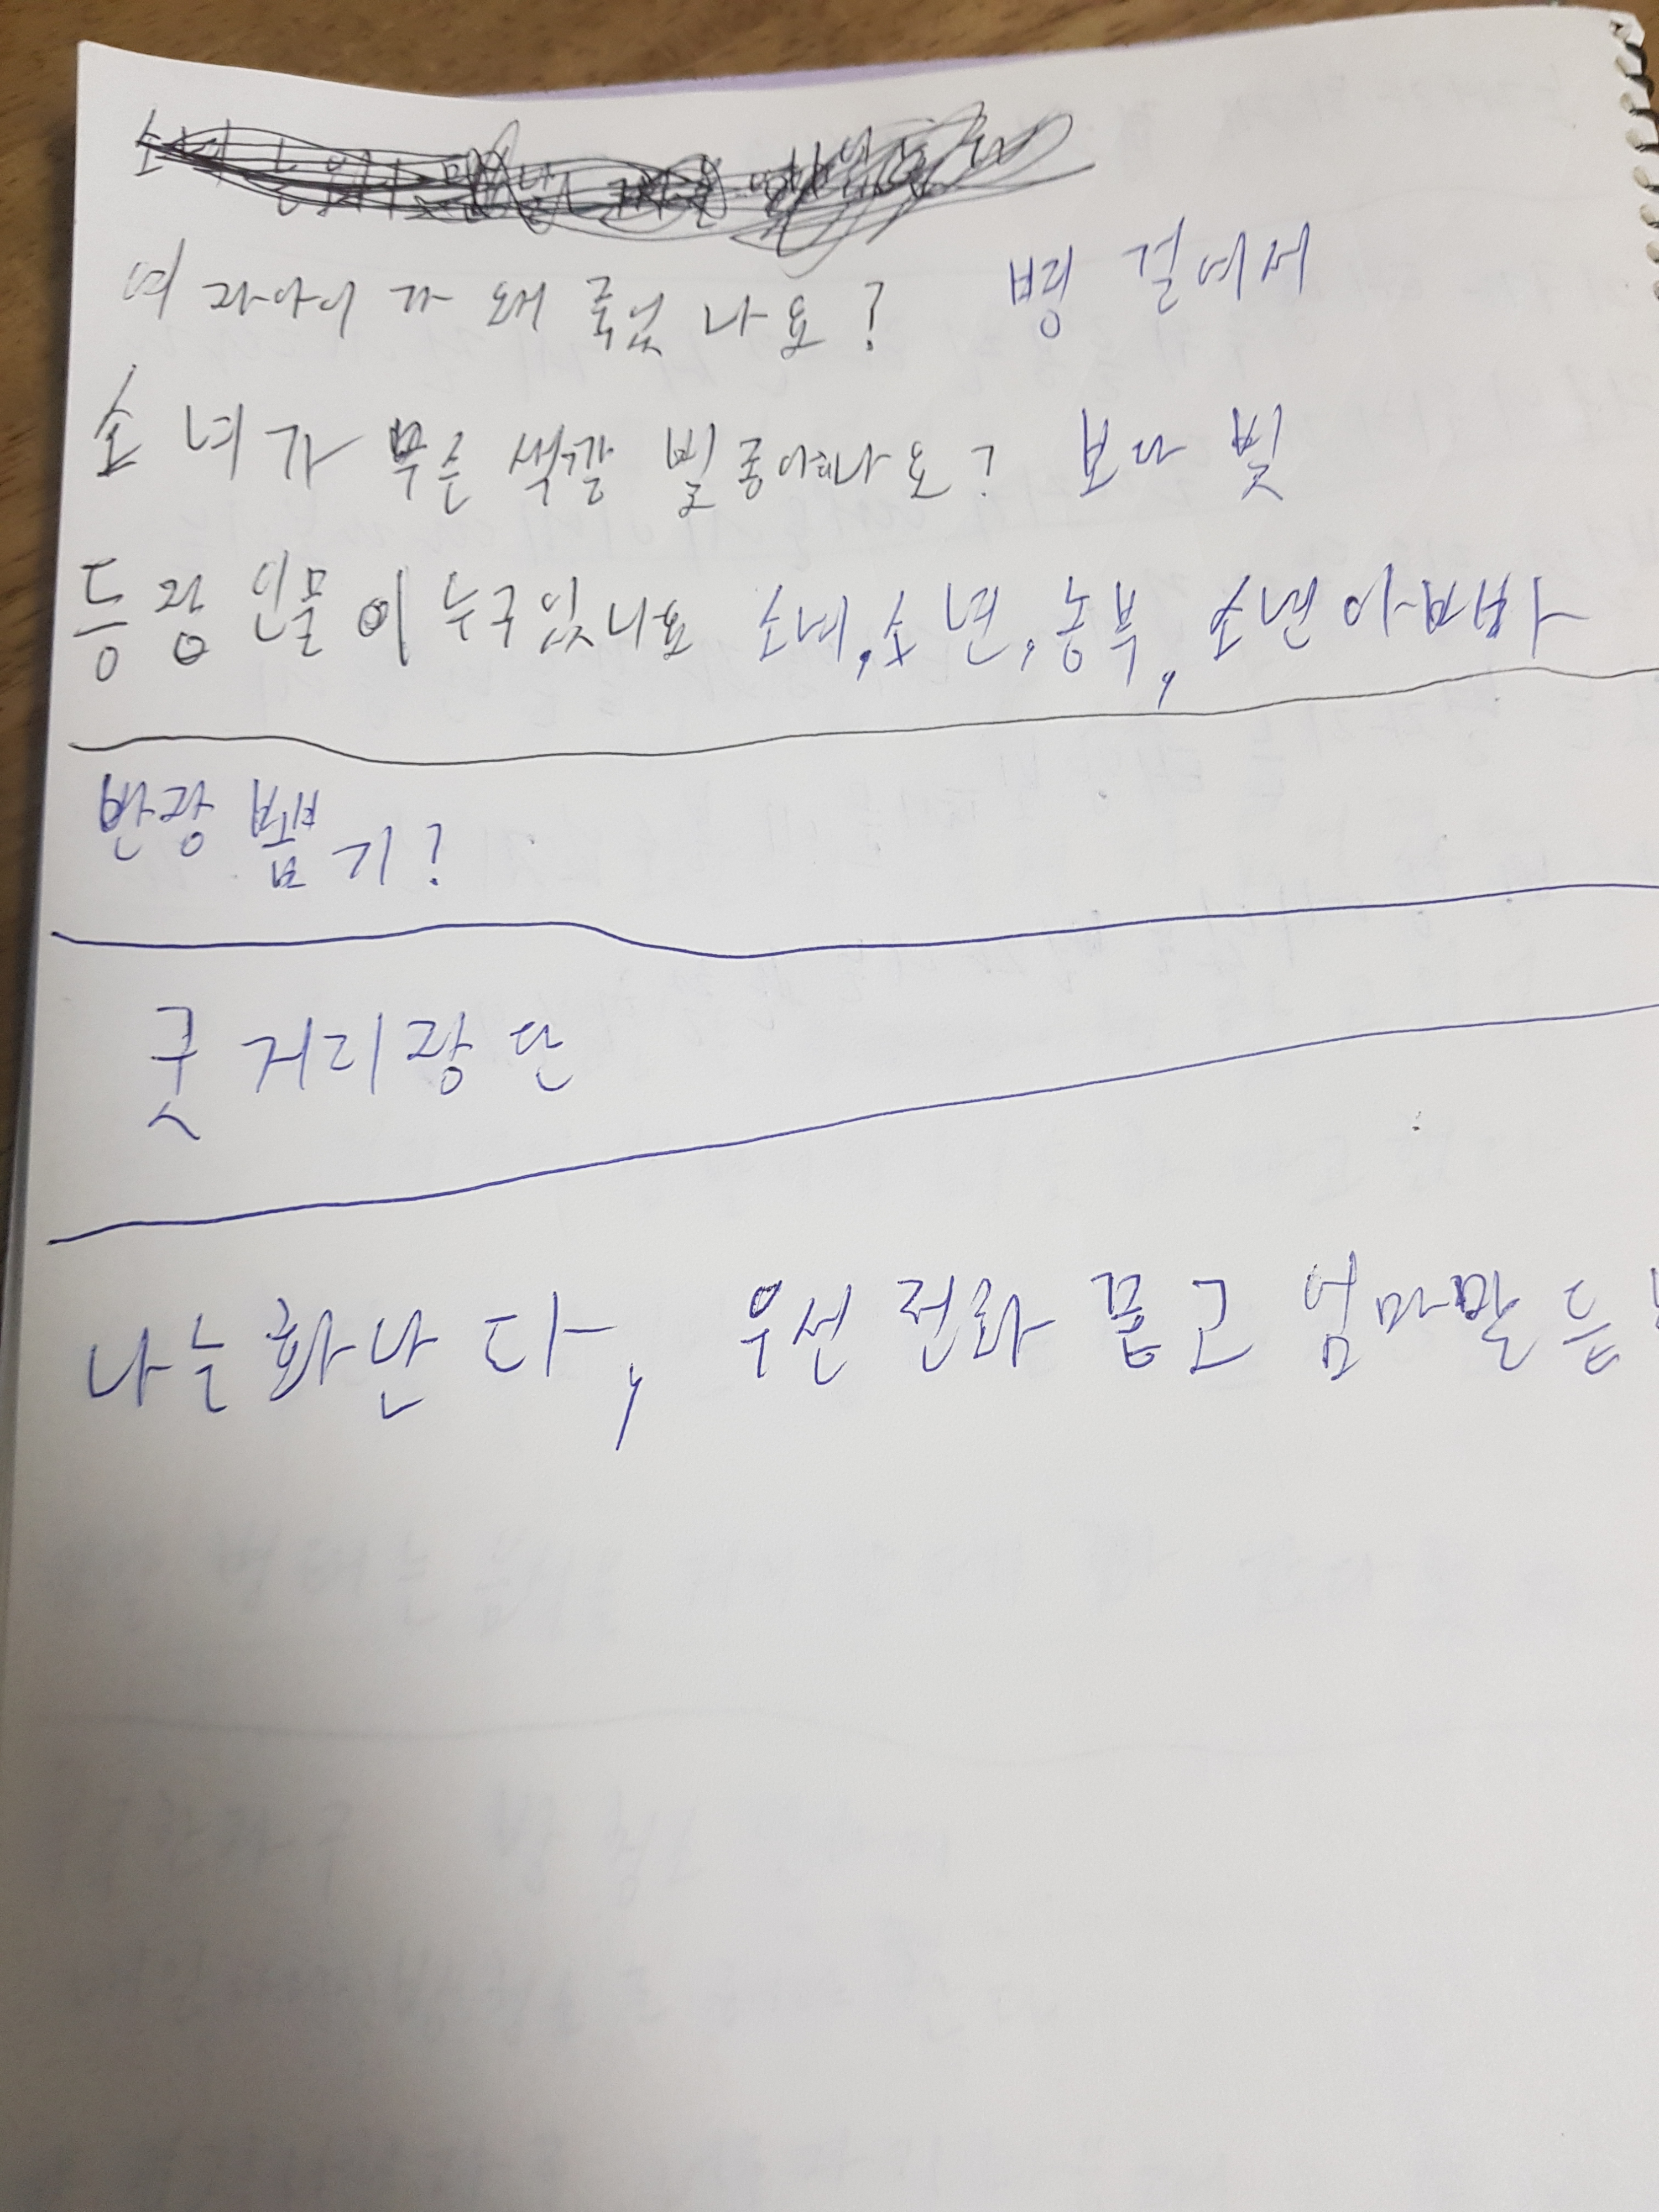 여자아이가 왜 죽었나요? 병 걸에서
소녀가 무슨 색깔 빛 좋아하나요? 보다 빛
등장인물이 누구있나요 소녀, 소년, 농부, 소년아빠
반장 뽑기?
굿거리장단
나는 화난다, 우선 전화 끊고 엄마말